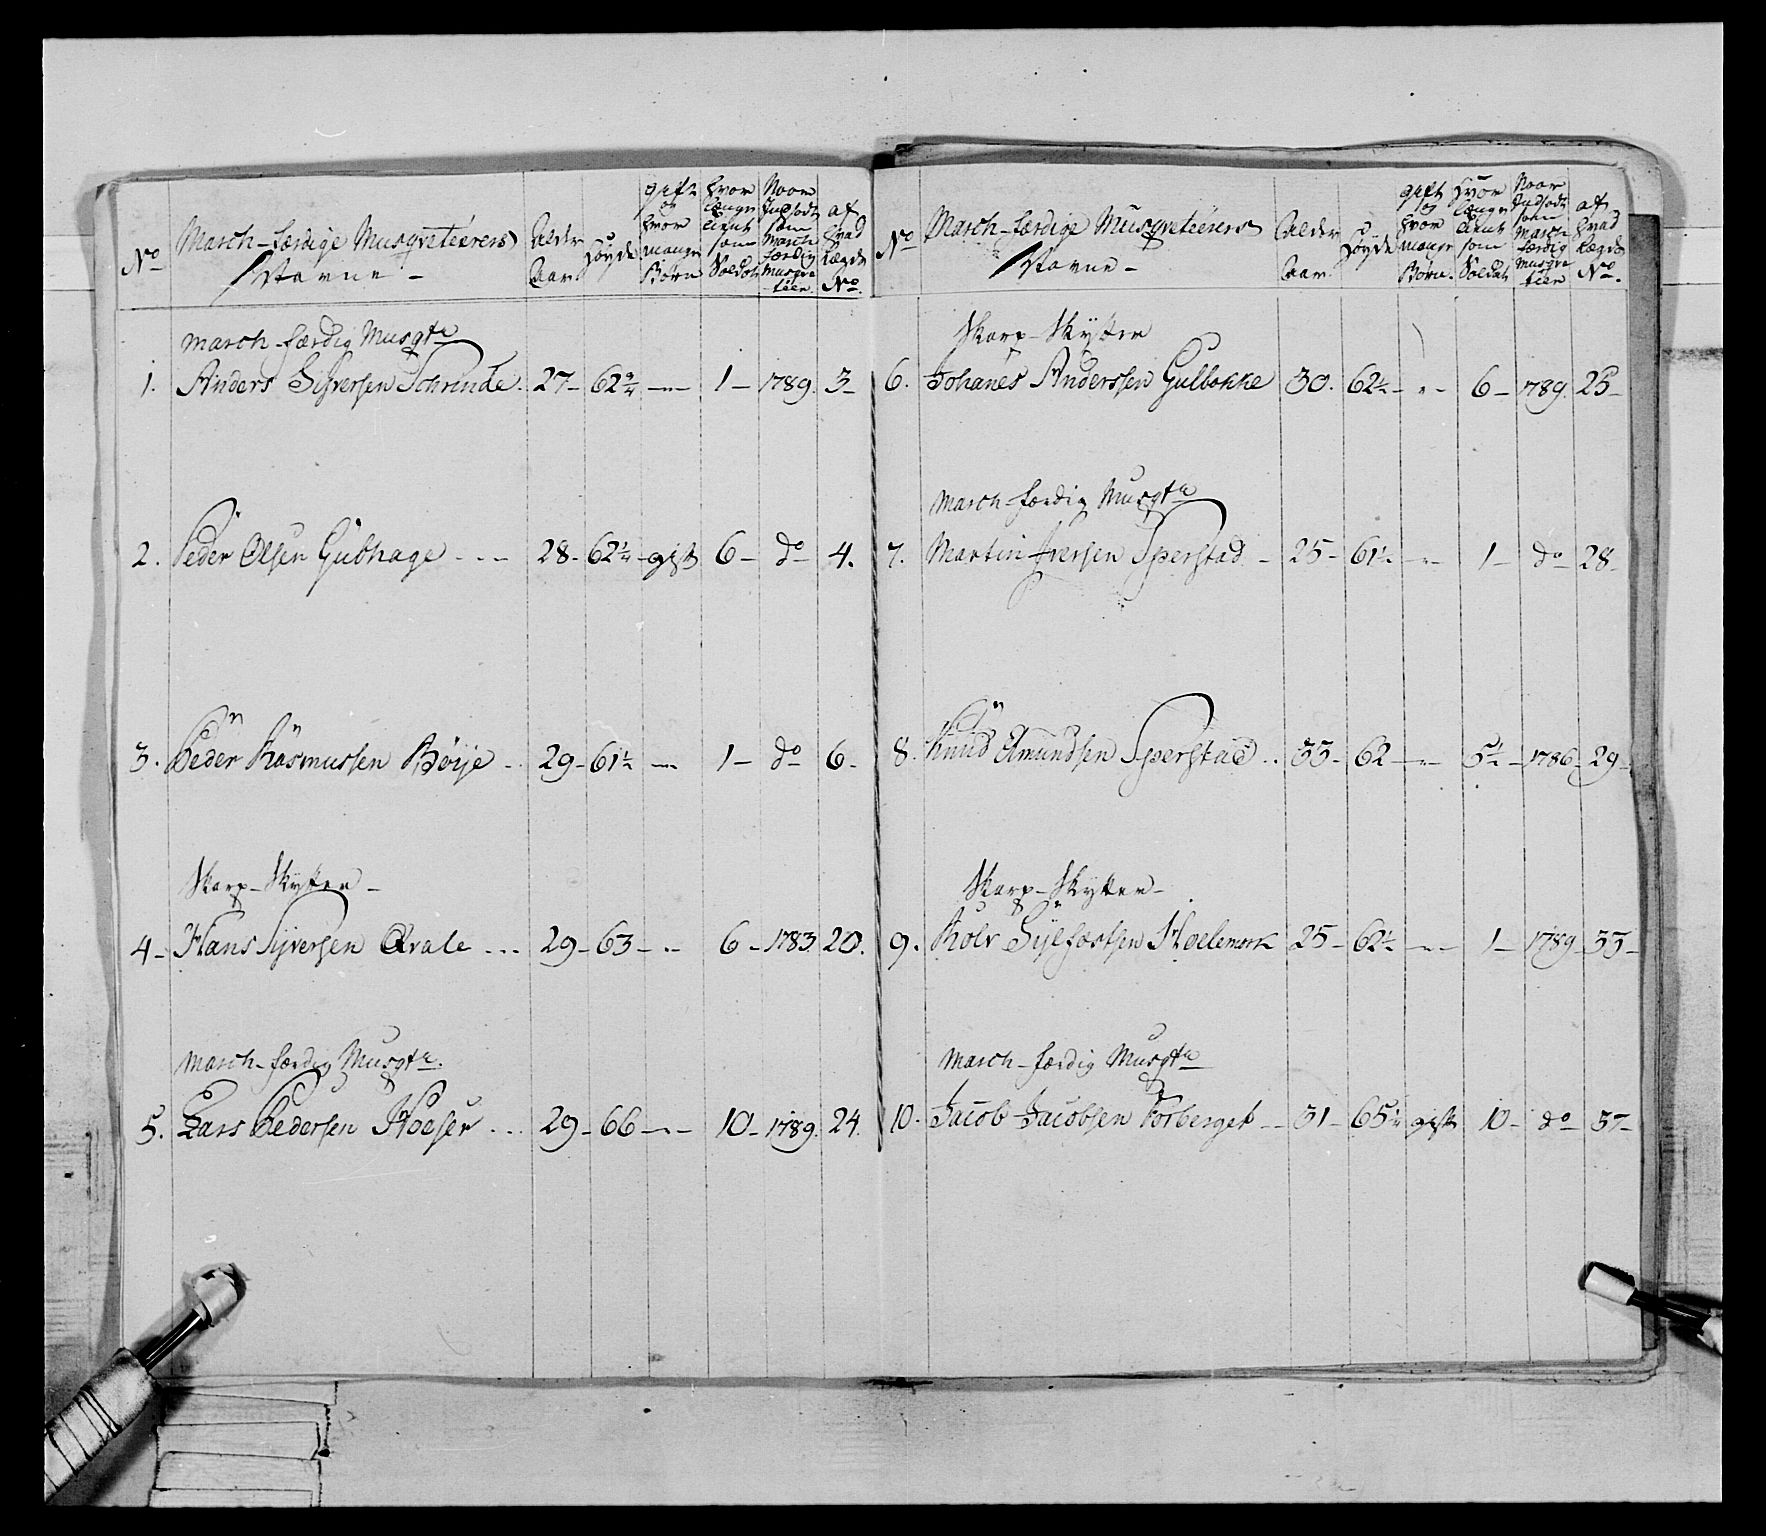 No
March-færdige Musqveteerers
Navne -
Alder
Aar
Høyde
gift
og
hvor
mange
Børn
hvor
længe
tient
som
Soldat
Naar
Indsadt
som
March
færdig
Musqve
teer.
af
hvad
Lægds
No.
march-færdig Musqtr
1. Anders Siversen Schrinde. 27- 62 3/4 -"- 1- 1789. 3-
2. Peder Olsen Gubhage --- 28- 62 1/2 - gift 6- do 4.
3. Peder Rasmussen Bøije .. 29- 61 1/2 -"- 1- do 6-
Skarp-Skytter -
4- Hans Syversen Qvale ... 29- 63- "- 6- 1783 20.
March-færdig Musqtr.
5. Lars Pedersen Høeser ... 29- 66-"- 10- 1789. 24.
No
March-færdige Musqveteerers
Navne -
Alder
Aar
Høyde
gift
og
hvor
mange
Børn.
Hvor
længe
tient
som
Soldat
Naar
Indsadt
som
March
færdig
Musqve
teer
af
hvad
Lægds
No.
Skarp-Skytter
6. Johanes Anderssen Gulbokke 30. 62 1/2 - "- 6- 1789. 25-
March-færdig Musqtr
7. Martin Iversen Sperstad - 25- 61 1/2 - "- 1- do 28-
8. Knud Amundsen Sperstad .. 33- 62 -"- 5 1/2 - 1786- 29-
Skarp-Skytter-
9. Rolv Sylfæstsen 25- 62 1/2 - "- 1- 1789- 33-
March-færdig Musqtr
10. Jacob Jacobsen Forberget -- 31- 65 1/2 gift 10- do 37-